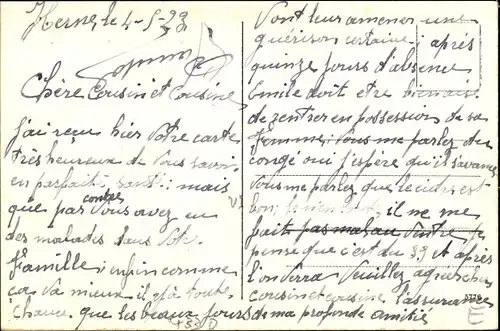 Herne, le 4-5-23
Chère Cousin et Cousine
J'ai reçu hier Votre carte
très heureux de Vous savoir
en parfait santé; mais
que par contre Vous avez eu
des malades dans Votre
Famille; enfin comme
ça Va mieux, il y a toute
chance, que les beaux jours
Vont leur amener une
guérison certaine; après
quinze jours d'absence
Emile doit etre
de rentrer en possession de sa
Femme; Vous me parlez du
congé oui j'espère qu'il s'avance
Vous me parlez que le cuirs est
bon; il ne me
fait pas mal au Ventre je
pense que c'est du 39 et après
l'on Verra Veuillez agréer chers
cousin et cousine l'assurance
de ma profonde amitié